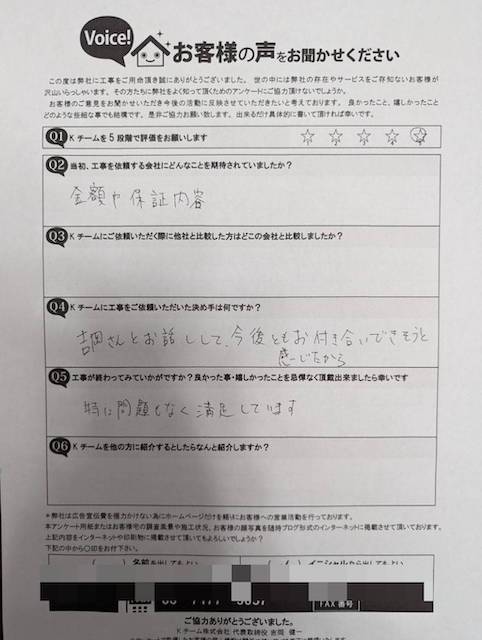 Voice! お客様の声をお聞かせください
この度は弊社に工事をご用命頂き誠にありがとうございました。 世の中には弊社の存在やサービスをご存知ないお客様が
沢山いらっしゃいます。その方たちに弊社をよく知って頂くためのアンケートにご協力頂けないでしょうか。
お客様のご意見をお聞かせいただき今後の活動に反映させていただきたいと考えております。 良かったこと、嬉しかったこと
どのような些細な事でも結構です。是非ご協力お願い致します。出来るだけ具体的に書いて頂ければ幸いです。
Q1 Kチームを5段階で評価をお願いします ☆ ☆ ☆ ☆ ☆
Q2 当初、工事を依頼する会社にどんなことを期待されていましたか?
金額や保証内容
Q3 Kチームにご依頼いただく際に他社と比較した方はどこの会社と比較しましたか?
Q4 Kチームに工事をご依頼いただいた決め手は何ですか?
吉岡さんとお話しして、今後ともお付き合いできそうと
感じたから
Q5 工事が終わってみていかがですか?良かった事・嬉しかったことを忌憚なく頂戴出来ましたら幸いです
特に問題もなく満足しています
Q6 Kチームを他の方に紹介するとしたらなんと紹介しますか?
*弊社は広告宣伝費を極力かけない為にホームページだけを頼りにお客様への営業活動を行っております。
本アンケート用紙またはお客様宅の調査風景や施工状況、お客様の顔写真を随時ブログ形式のインターネットに掲載させて頂いております。
上記内容をインターネットや印刷物に掲載させて頂いてもよろしいでしょうか?
下記の中から○印をお付下さい。
( ) 名前を出してもよい ( ) イニシャルなら出してもよい
FAX番号
ご協力ありがとうございました。
Kチーム株式会社 代表取締役 吉岡 健一